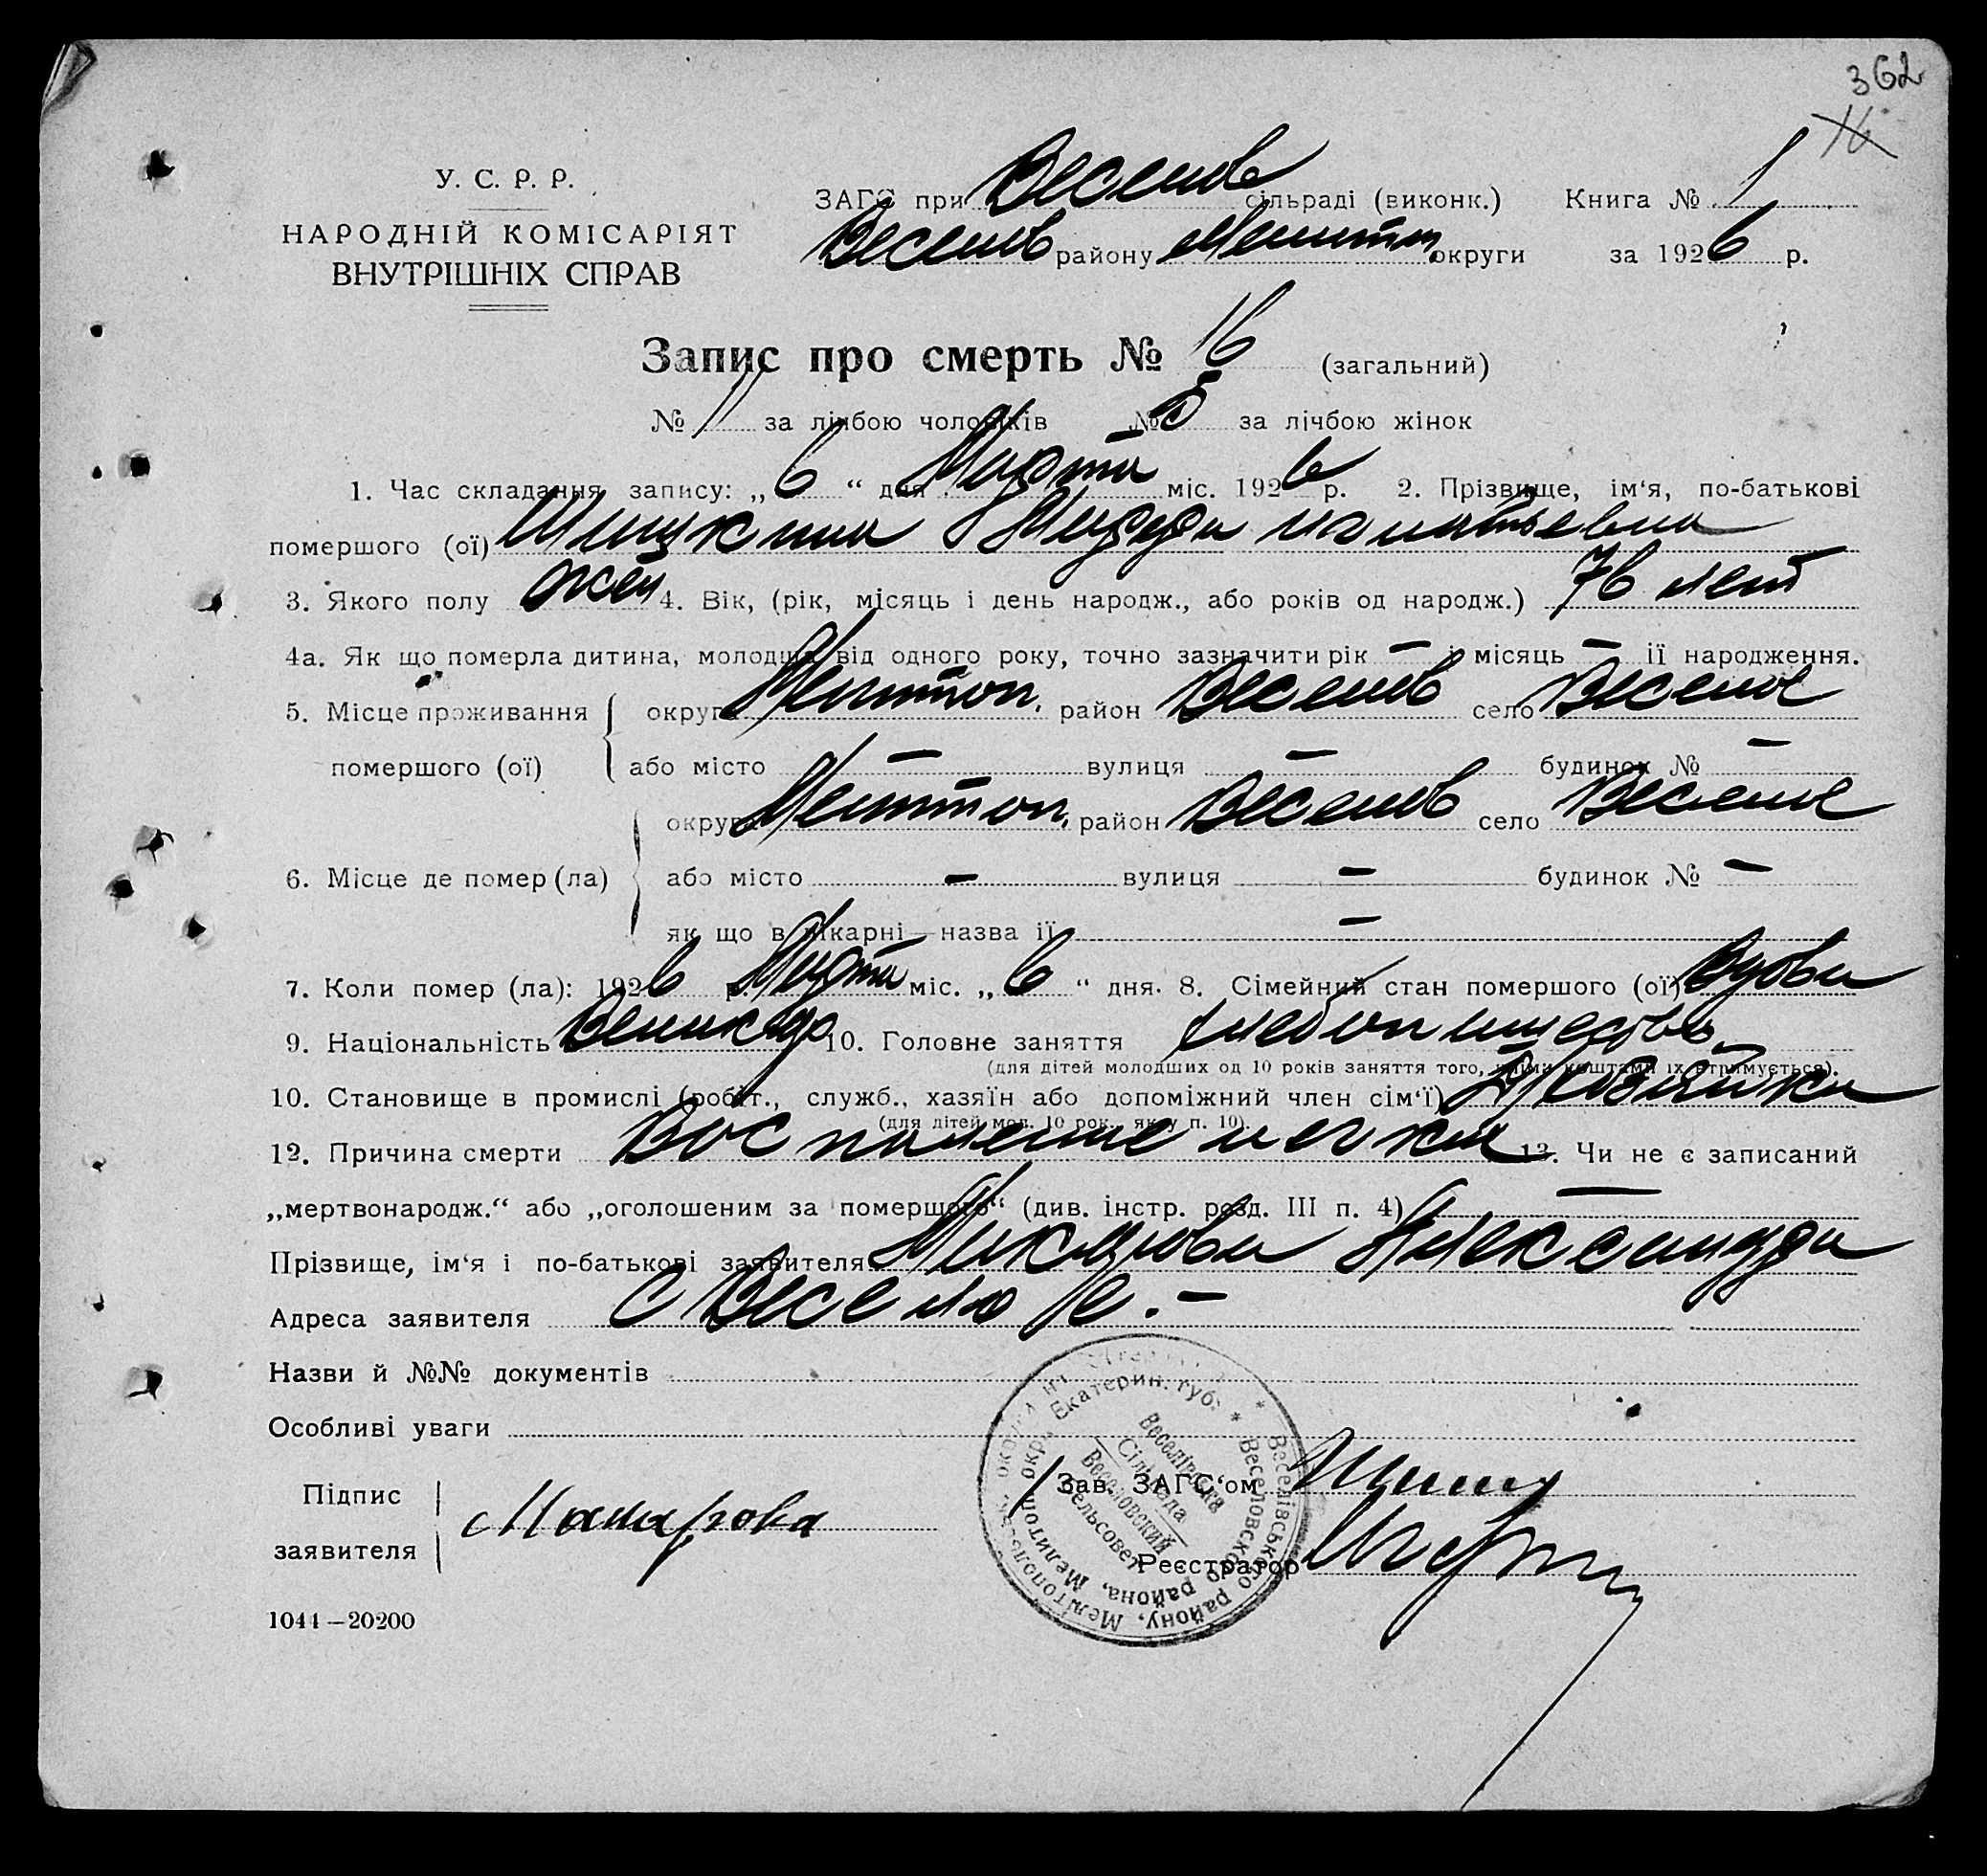 362
16
У. С. Р. Р.
НАРОДНІЙ КОМІСАРІЯТ
ВНУТРІШНІХ СПРАВ
ЗАГС при Веселов сільраді (виконк.) Книга № 1
Веселов району Мелитоп округи за 1926 р.
Запис про смерть № 16 (загальний)
№ 11 за лічбою чоловіків № 5 за лічбою жінок
1. Час складання запису: „6“ дня Марта міс. 1926 р. 2. Прізвище, ім‘я, по-батькові
помершого (ої) Марфа Игнатьевна
3. Якого полу жен 4. Вік, (рік, місяць і день народж., або років од народж.) 76 лет
4а. Як що померла дитина, молодша від одного року, точно зазначити рік — і місяць — її народження.
5. Місце проживання округа Мелитоп. район Веселов село Веселое
помершого (ої) або місто — вулиця — будинок № —
округа Мелитоп. район Веселов село Веселое
6. Місце де помер (ла) або місто — вулиця — будинок № —
як що в лікарні—назва її —
7. Коли помер (ла): 1926 р. Марта міс. „6“ дня. 8. Сімейний стан помершого (ої) Вдова
9. Національність Великор 10. Головне заняття хлебопашество
(для дітей молодших од 10 років заняття того, чиїми коштами їх втримується).
10. Становище в промислі (робіт., служб., хазяїн або допоміжний член сім‘ї) Хозяйка
(для дітей мол. 10 рок., як у п. 10).
12. Причина смерти Воспаление легких 13. Чи не є записаний
„мертвонародж.“ або „оголошеним за померщого“ (див. інстр. розд. III п. 4) —
Прізвище, ім‘я і по-батькові заявителя Макарова Александра
Адреса заявителя С Веселое.–
Назви й №№ документів
Особливі уваги
Підпис
заявителя Макарова
Зав. ЗАГС‘ом
Реєстратор
Веселівського району, Мелітопольськ. округи
Веселовского района, Мелитоп. окр. Екатерин. губ.
Веселівська
Сільрада
Веселовский
сельсовет
1044—20200